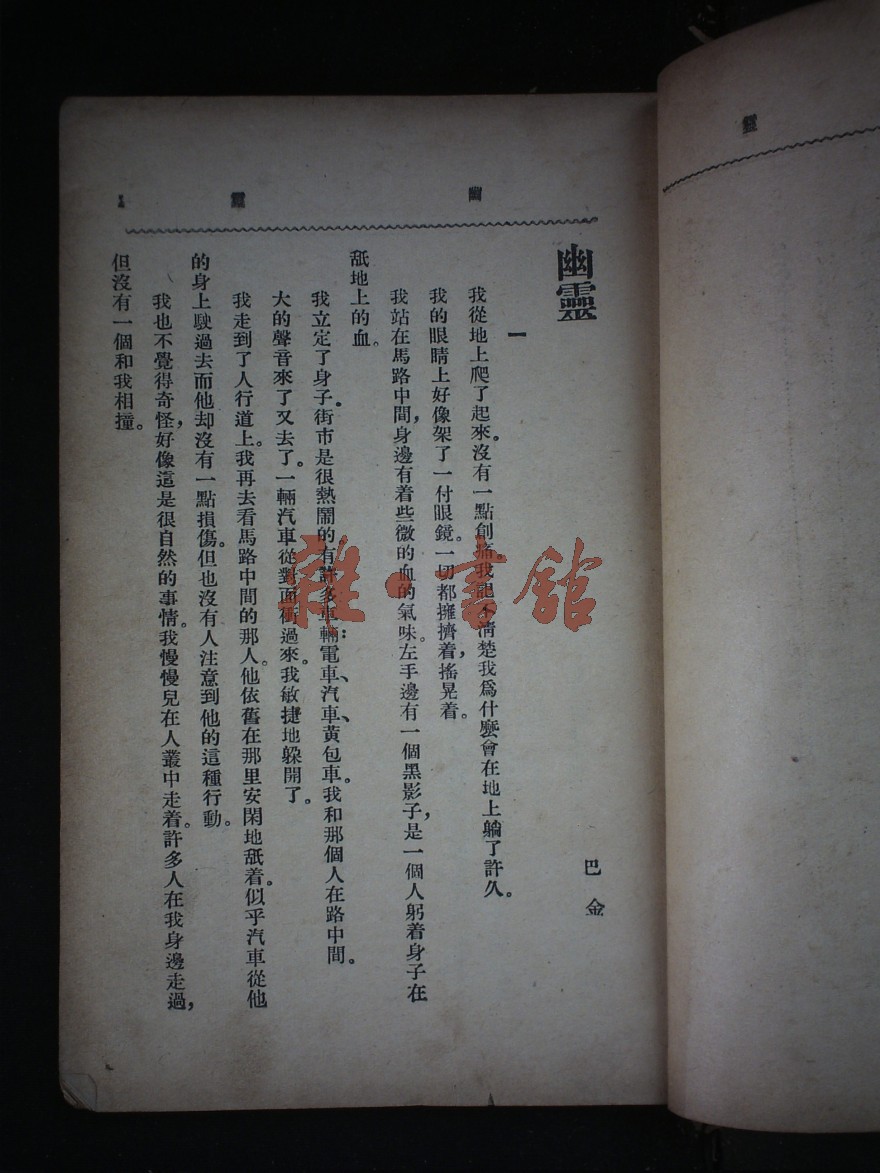 幽靈
幽靈
巴金
一
我從地上爬了起來。沒有一點創痛。我記不清楚我爲什麼會在地上躺了許久。
我的眼睛上好像架了一付眼鏡。一切都擁擠着，搖晃着。
我站在馬路中間，身邊有着些微的血的氣味。左手邊有一個黑影子，是一個人躬着身子在
舐地上的血。
我立定了身子。街市是很熱鬧的，有許多車輛：電車、汽車、黃包車。我和那個人在路中間。
大的聲音來了又去了。一輛汽車從對面衝過來。我敏捷地躱開了。
我走到了人行道上。我再去看馬路中間的那人。他依舊在那里安閑地舐着。似乎汽車從他
的身上駛過去而他却沒有一點損傷。但也沒有人注意到他的這種行動。
我也不覺得奇怪，好像這是很自然的事情。我慢慢兒在人叢中走着。許多人在我身邊走過，
但沒有一個和我相撞。
靈
雜·書館